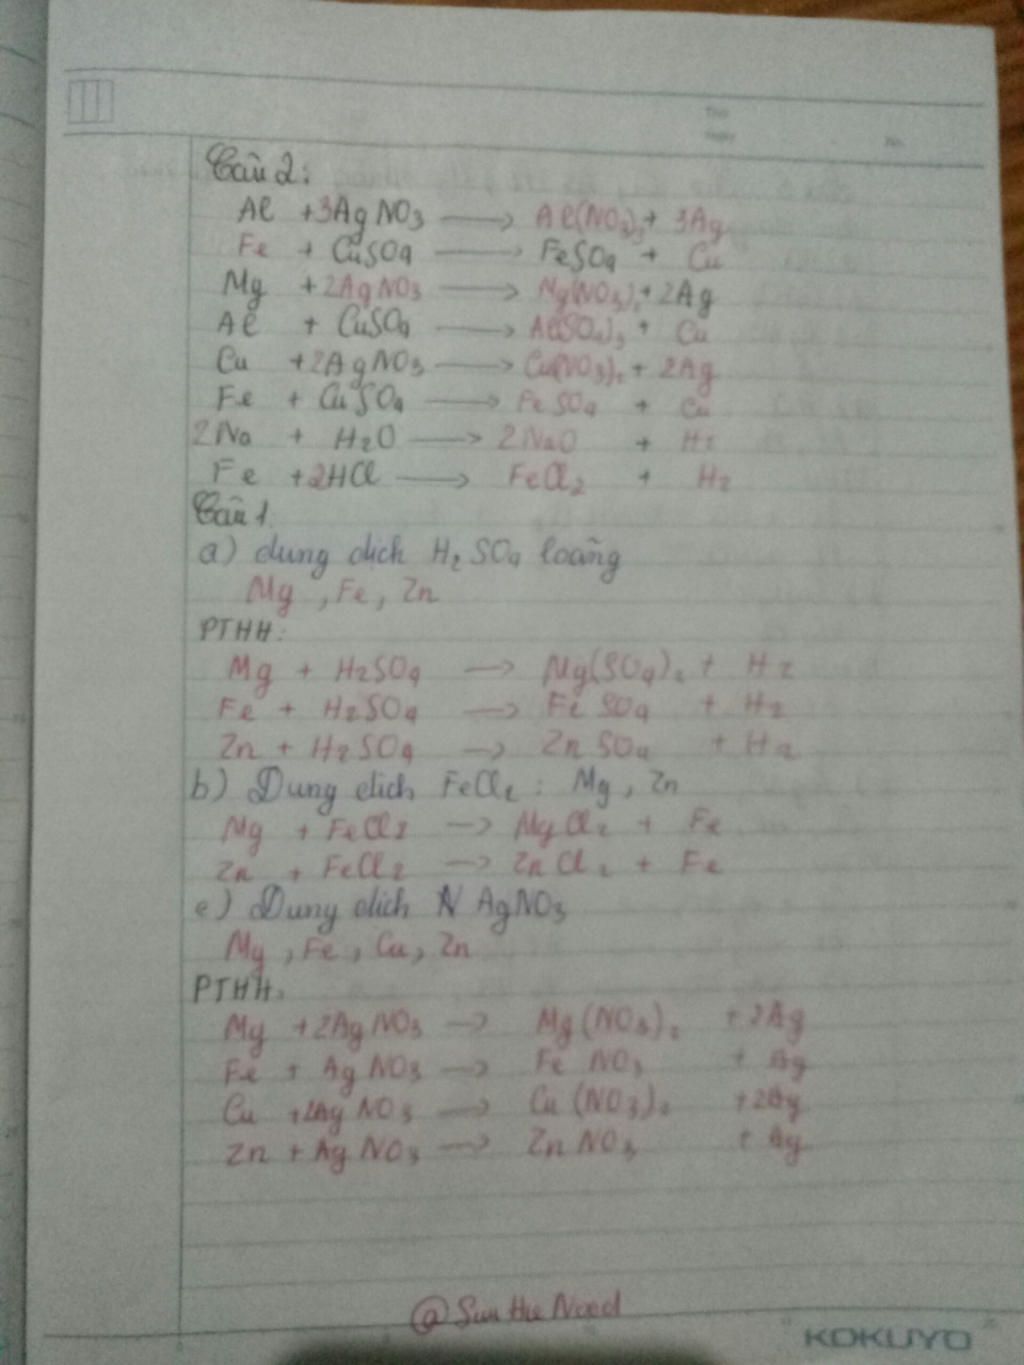 Câu 2:
Al + 3AgNO3 → Al(NO3)3 + 3Ag
Fe + CuSO4 → FeSO4 + Cu
Mg + 2AgNO3 → Mg(NO3)2 + 2Ag
Al + CuSO4 → Al(SO4)3 + Cu
Cu + 2AgNO3 → Cu(NO3)2 + 2Ag
Fe + CuSO4 → FeSO4 + Cu
2Na + H2O → 2NaO + H2
Fe + 2HCl → FeCl2 + H2
Câu 1
a) dung dịch H2SO4 loãng
Mg, Fe, Zn
PTHH:
Mg + H2SO4 → Mg(SO4)2 + H2
Fe + H2SO4 → FeSO4 + H2
Zn + H2SO4 → ZnSO4 + H2
b) Dung dịch FeCl2 : Mg, Zn
Mg + FeCl2 → MgCl2 + Fe
Zn + FeCl2 → ZnCl2 + Fe
c) Dung dịch AgNO3
Mg, Fe, Cu, Zn
PTHH:
Mg + 2AgNO3 → Mg(NO3)2 + 2Ag
Fe + AgNO3 → FeNO3 + Ag
Cu + 2AgNO3 → Cu(NO3)2 + 2Ag
Zn + AgNO3 → ZnNO3 + Ag
@Sun the
KOKUYO